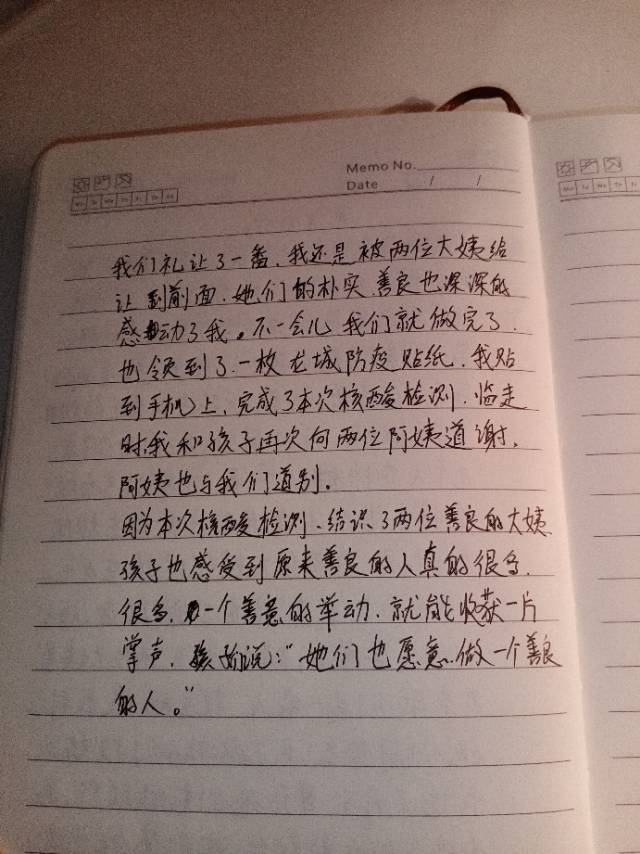 Memo No.
Date / /
Mo Tu We Th Fr Sa Su
我们礼让了一番，我还是被两位大姨给
让到前面，她们的朴实、善良也深深的
感动了我。不一会儿我们就做完了，
也领到了一枚龙城防疫贴纸，我贴
到手机上，完成了本次核酸检测，临走
时，我和孩子再次向两位阿姨道谢，
阿姨也与我们道别。
因为本次核酸检测、结识了两位善良的大姨
孩子也感受到原来善良的人真的很多，
很多，一个善意的举动，就能收获一片
掌声，孩子们说：“她们也愿意做一个善良
的人。”